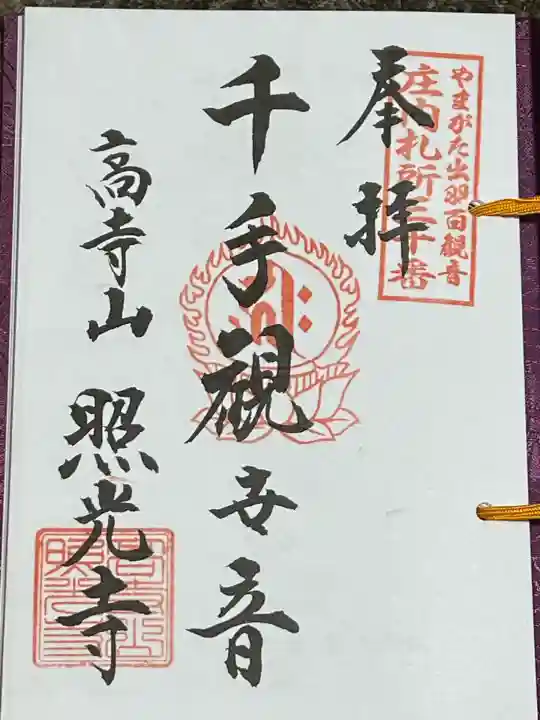 やまがた出羽百観音
庄内札所三十番
奉拝
千手観世音
高寺山 照光寺